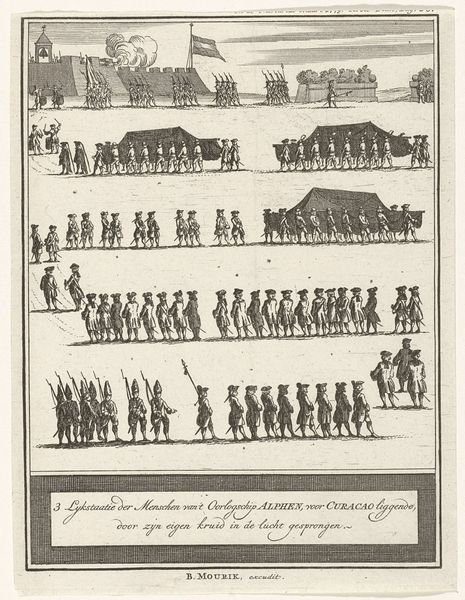 3 Lykstaatie der Menschen van't Oorlogschip ALPHEN, voor CURACAO liggende,
door zijn eigen kruid in de lucht gesprongen.
B. MOURIK, excudit.